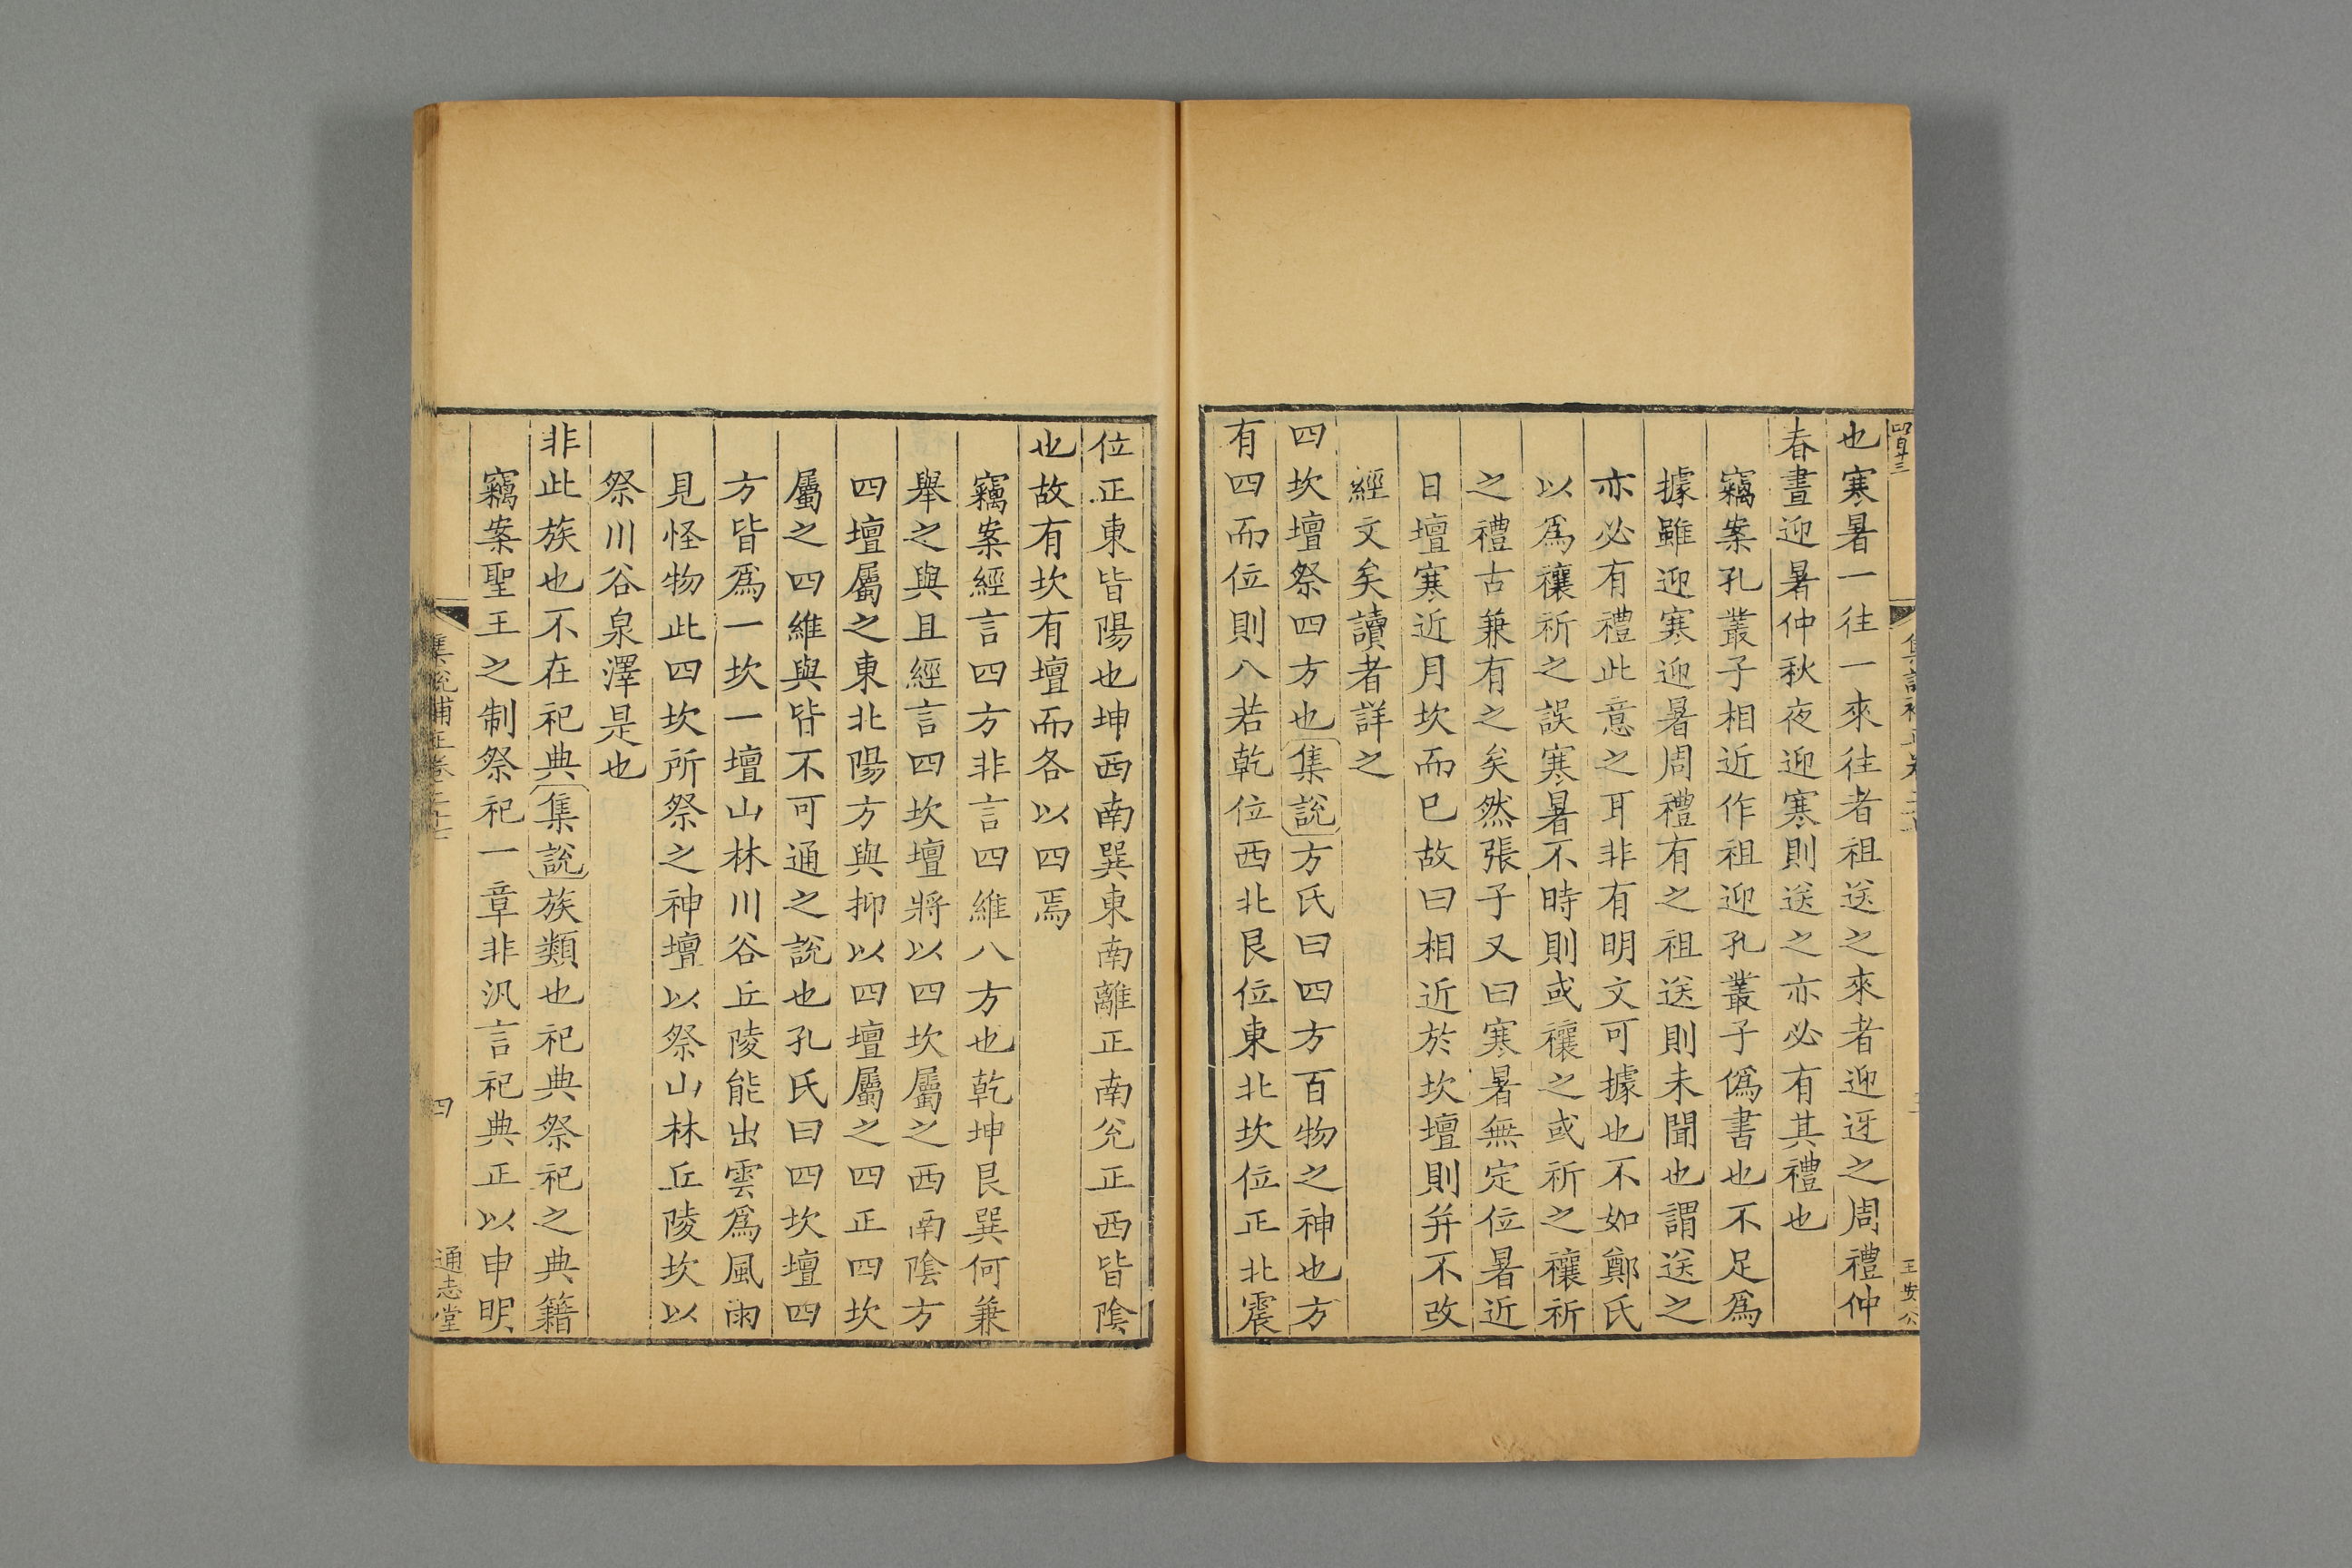 也寒暑一往一來往者祖送之來者迎迓之周禮仲
春晝迎暑仲秋夜迎寒則送之亦必有其禮也
竊案孔叢子相近作祖迎孔叢子僞書也不足爲
據雖迎寒迎暑周禮有之祖送則未聞也謂送之
亦必有禮此意之耳非有明文可據也不如鄭氏
以爲禳祈之誤寒暑不時則或禳之或祈之禳祈
之禮古兼有之矣然張子又曰寒暑無定位暑近
日壇寒近月坎而已故曰相近於坎壇則并不改
經文矣讀者詳之
四坎壇祭四方也集說方氏曰四方百物之神也方
有四而位則八若乾位西北艮位東北坎位正北震
王安公
位正東皆陽也坤西南巽東南離正南兊正西皆隂
也故有坎有壇而各以四焉
竊案經言四方非言四維八方也乾坤艮巽何兼
舉之與且經言四坎壇將以四坎屬之西南隂方
四壇屬之東北陽方與抑以四壇屬之四正四坎
屬之四維與皆不可通之說也孔氏曰四坎壇四
方皆爲一坎一壇山林川谷丘陵能出雲爲風雨
見怪物此四坎所祭之神壇以祭山林丘陵坎以
祭川谷泉澤是也
非此族也不在祀典集說族類也祀典祭祀之典籍
竊案聖王之制祭祀一章非汎言祀典正以申明
集說補正卷二十七
四
通志堂